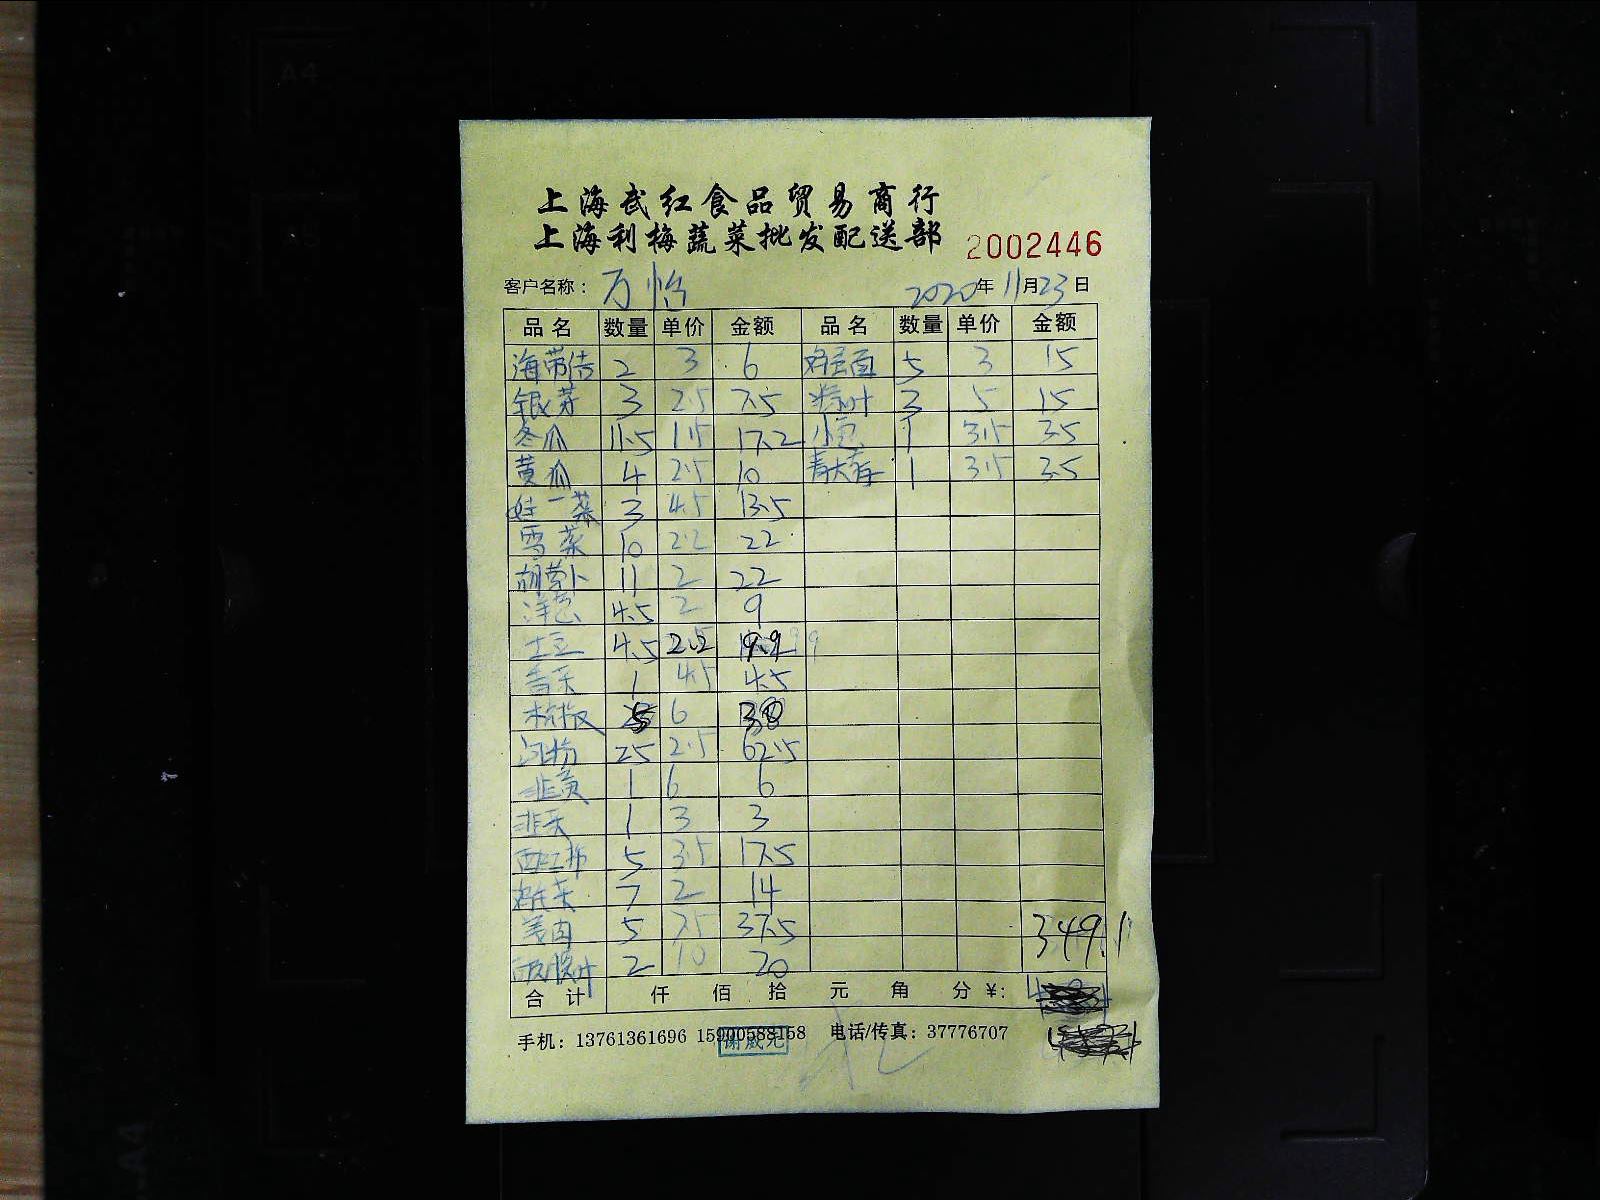 上海武红食品贸易商行
上海利梅蔬菜批发配送部
2002446
客户名称： 万怡 2020年11月23日
品名 数量 单价 金额 品名 数量 单价 金额
海带结 2 3 6 鸡蛋面 5 3 15
银芽 3 2.5 7.5 5 15
冬瓜 11.5 1.5 17.2 小葱 1 3.5 3.5
黄瓜 4 2.5 10 青大蒜 1 3.5 3.5
3 4.5 13.5
雪菜 10 2.2 22
胡萝卜 11 2 22
洋葱 4.5 2 9
土豆 4.5 2.2 9.9
1 4.5 4.5
杭椒 5 6
河粉 25 2.5 62.5
韭黄 1 6 6
韭菜 1 3 3
西红柿 5 3.5 17.5
7 2 14
5 7.5 37.5
2 10 20
349.1
合计 仟 佰 拾 元 角 分 ¥:
手机：13761361696 15900588158 电话/传真：37776707